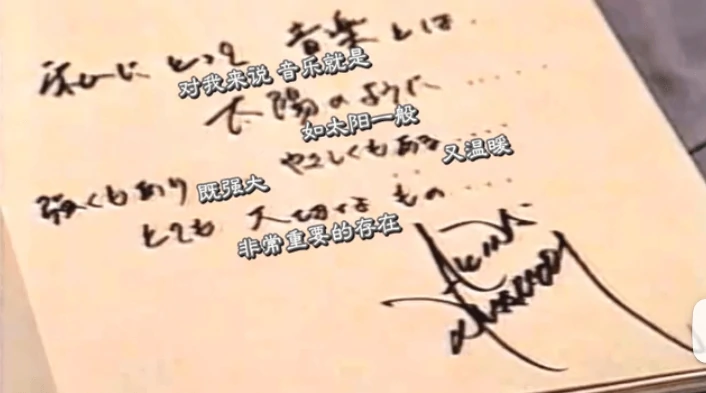 私にとって 音楽とは..
对我来说 音乐就是
太陽のように......
如太阳一般
やさしくもある.....
又温暖
強くもあり
既强大
とても 大切なもの....
非常重要的存在